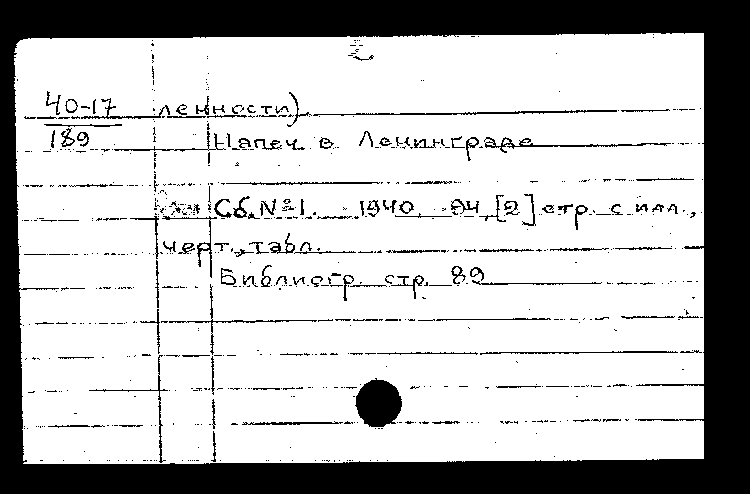 2.
40-17 ленности).
189 Напеч. в Ленинграде
Сб. № 1. 1940. 94, [2] стр. с илл.,
черт., табл.
Библиогр. стр. 89